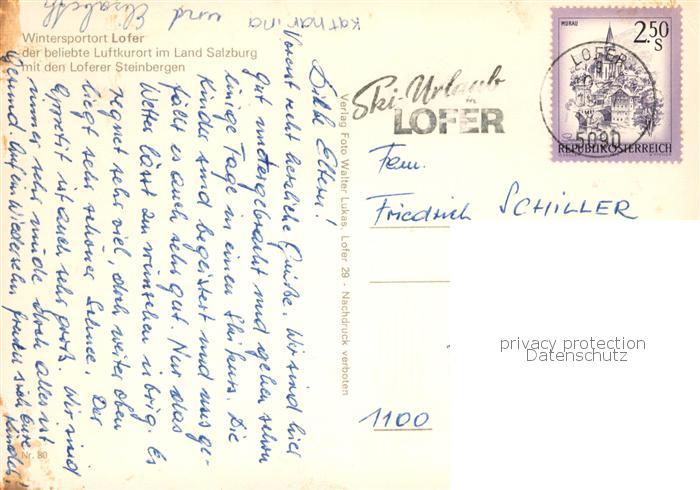 Wintersportort Lofer
der beliebte Luftkurort im Land Salzburg
mit den Loferer Steinbergen
MURAU
2.50
S
REPUBLIK ÖSTERREICH
LOFER
5090
Ski-Urlaub
in
LOFER
Fam.
Friedrich SCHILLER
1100
privacy protection
Datenschutz
Verlag Foto Walter Lukas, Lofer 29 - Nachdruck verboten
Nr. 80
Liebe Eltern!
Vorerst recht herzliche Grüße. Wir sind hier
gut untergebracht und gehen schon
einige Tage in einen Skikurs. Die
Kinder sind begeistert und uns ge-
fällt es auch sehr gut. Nur das
Wetter lässt zu wünschen übrig. Es
regnet sehr viel, doch weiter oben
liegt sehr schöner Schnee. Der
Appetit ist auch sehr groß. Wir sind
immer sehr müde doch alles ist
gesund. Auf ein Wiedersehn freuen sich Eure
Kinder,
Katharina und Elisabeth